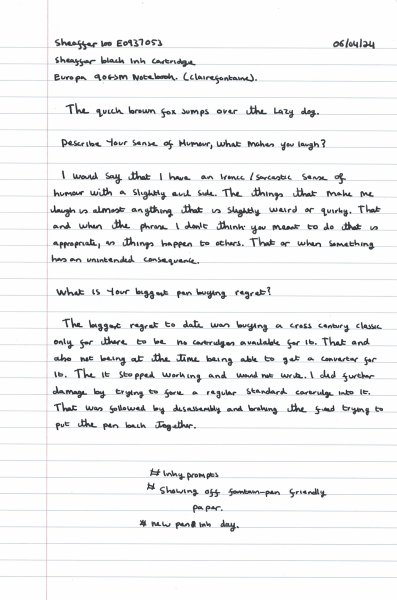 Sheaffer 100 E0937053 06/04/24
Sheaffer black ink cartridge
Europa 90GSM Notebook. (Clairefontaine).
The quick brown fox jumps over the lazy dog.
Describe Your Sense of Humour, What makes you laugh?
I would Say that I have an Ironic / Sarcastic Sense of
humour with a slightly evil side. The things that make me
laugh is almost anything that is slightly weird or quirky. That
and when the phrase I don't think you meant to do that is
appropriate, as things happen to others. That or when something
has an unintended consequence.
What is Your biggest pen buying regret?
The biggest regret to date was buying a cross century classic
only for there to be no cartridges available for it. That and
also not being at the time being able to get a converter for
it. The it stopped working and would not write. I did further
damage by trying to force a regular standard cartridge into it.
That was followed by disassembly and braking the feed trying to
put the pen back together.
# Inky prompts
# Showing off fountain-pen friendly
paper.
* new pen & ink day.